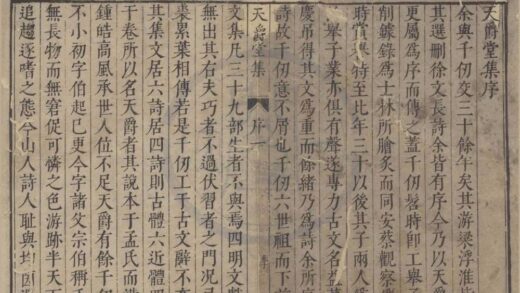 天爵堂集序
余與千仞交三十餘年矣其游梁浮淮
其選刪徐文長詩余皆有序今乃以天爵
更屬為序而傳之蓋千仞髫時即工舉
削鱗錄為士林所膾炙而同安蔡觀察
時賞舉特至比年三十以後其子兩人
舉子業亦俱有聲遂專力古文名益
慶弔得其文為重而餘緒乃為詩余所
詩故千仞意不屑也千仞六世祖而下
天爵堂集 序一
文集凡三十九部生者不與焉四明文
無出其右夫巧者不過伏習者之門况
累葉相傳若是千仞工于古文辭不
其集文居六詩居四詩則古體六近體
干卷所以名天爵者其說本于孟氏而
鍾皓高風承世人位不足天爵有餘千
不小初字伯起已更今字諸父宗伯稱千
無長物而無窘促可憐之色游跡半天
追趨逐嗜之態今山人詩人耻與均